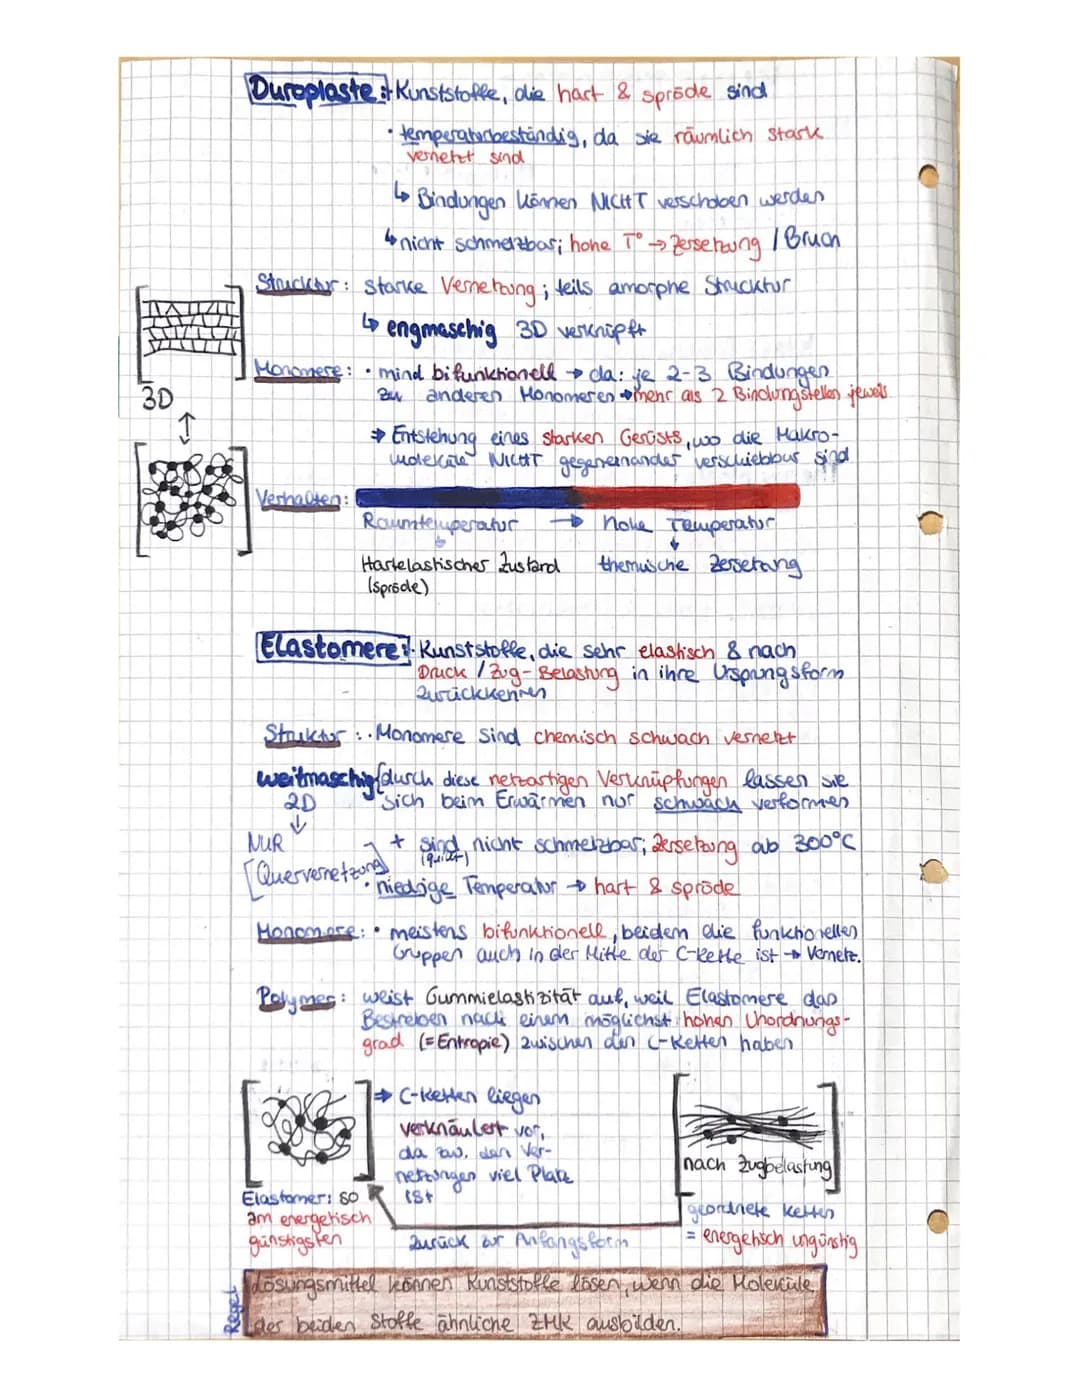 Duroplaste: • Kunststoffe, die hart & spröde sind
• temperaturbeständig, da sie räumlich stark
vernetzt sind
↳ Bindungen können NICHT verschoben werden
↳ nicht schmelzbar; hohe T° → Zersetzung / Bruch
Strucktur: starke Vernetzung; teils amorphe Strucktur
↳ engmaschig 3D verknüpft
Monomere: • mind bifunktionell → da: je 2-3 Bindungen
zu anderen Monomeren → mehr als 2 Bindungstellen jeweils
3D
⇒ Entstehung eines starken Gerüsts, wo die Makro-
moleküle NICHT gegeneinander verschiebbar sind
Verhalten:
Raumtemperatur → hohe Temperatur
Hartelastischer Zustand thermische Zersetzung
(spröde)
Elastomere: • Kunststoffe, die sehr elastisch & nach
Druck / Zug-Belastung in ihre Ursprungsform
zurückkehren
Struktur: • Monomere sind chemisch schwach vernetzt
weitmaschig durch diese netzartigen Verknüpfungen lassen sie
2D sich beim Erwärmen nur schwach verformen
NUR + sind nicht schmelzbar; Zersetzung ab 300°C
[Quervernetzung]
• niedrige Temperatur → hart & spröde
Monomere: • meistens bifunktionell, beidem die funktionellen
Gruppen auch in der Mitte der C-Kette ist → Vernetz.
Polymer: weist Gummielastizität auf, weil Elastomere das
Bestreben nach einem möglichst hohen Unordnungs-
grad (=Entropie) zwischen den C-Ketten haben
⇒ C-Ketten liegen
verknäulert vor,
da zw. den Ver-
netzungen viel Platz
ist
nach Zugbelastung
Elastomer: so
am energetisch
günstigsten
geordnete Ketten
= energetisch ungünstig
zurück zur Anfangsform
Regel
Lösungsmittel können Kunststoffe lösen, wenn die Moleküle
der beiden Stoffe ähnliche ZMK ausbilden.